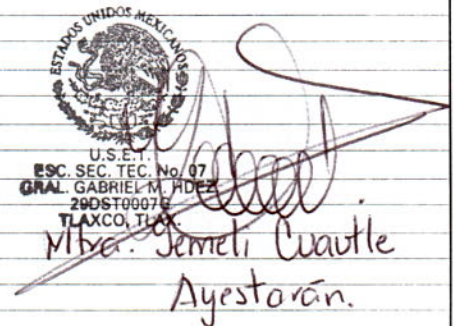 ESTADOS UNIDOS MEXICANOS
U.S.E.T.
ESC. SEC. TEC. No. 07
GRAL. GABRIEL M. HDEZ
29DST0007G
TLAXCO, TLAX.
Mtra. Jemeli Cuautle
Ayestarán.